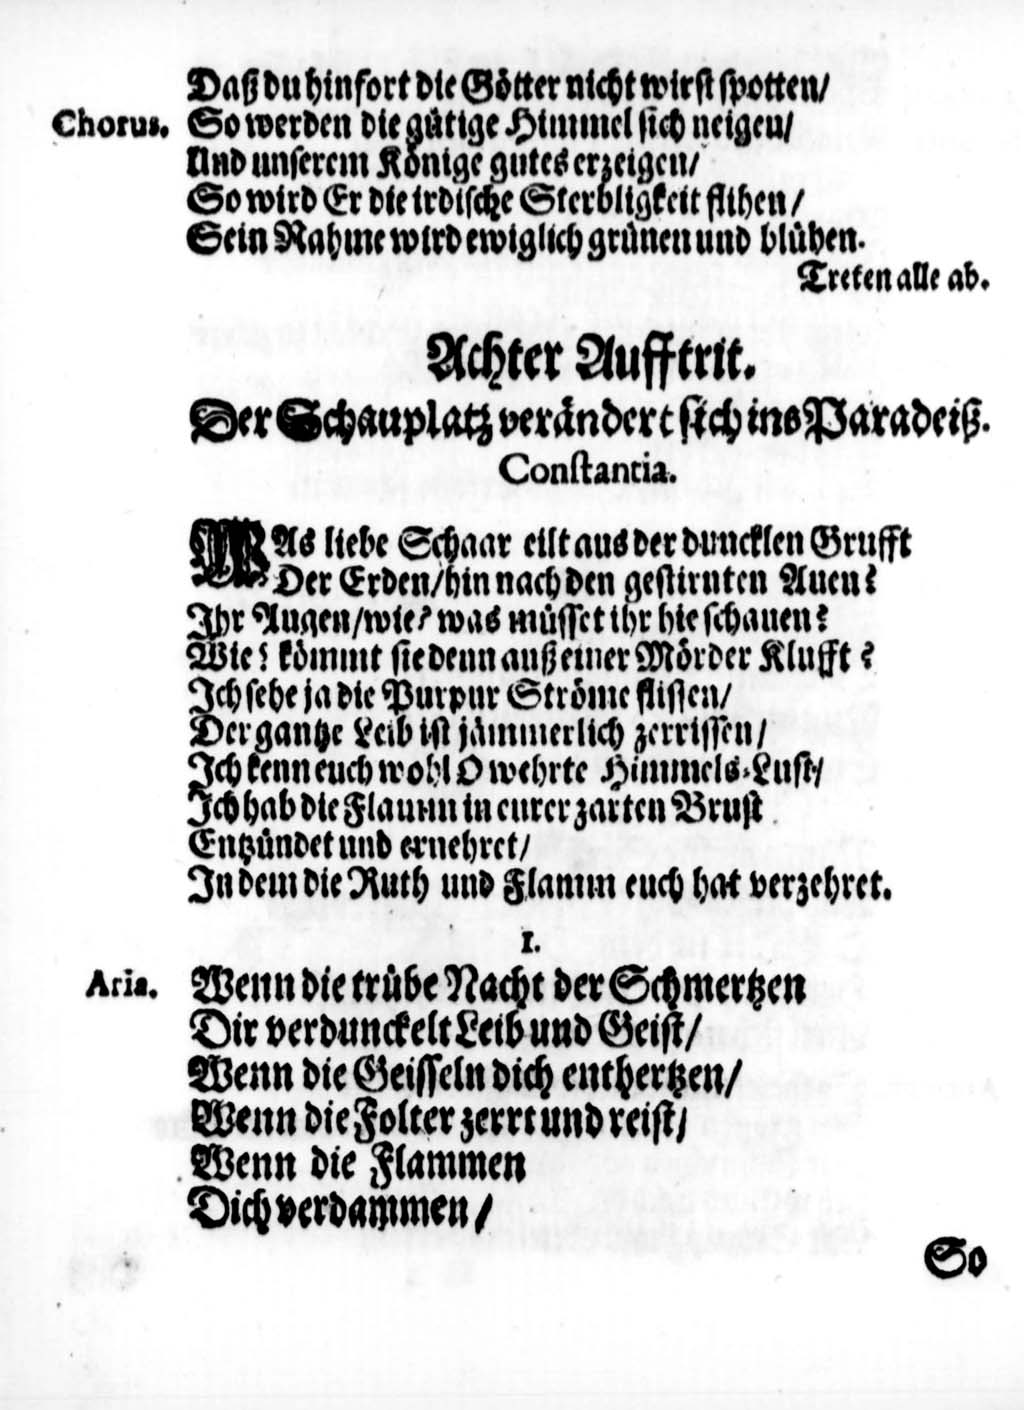 Daß du hinfort die Götter nicht wirst spotten/
Chorus. So werden die gütige Himmel sich neigen/
Und unserem Könige gutes erzeigen/
So wird Er die irdische Sterbligkeit flihen/
Sein Nahme wird ewiglich grünen und blühen.
Treten alle ab.
Achter Aufftrit.
Der Schauplatz verändert sich ins Paradeiß.
Constantia.
WAs liebe Schaar eilt aus der duncklen Grufft
Der Erden/hin nach den gestirnten Auen?
Ihr Augen/wie? was müsset ihr hie schauen?
Wie? kömmt sie denn auß einer Mörder Klufft?
Ich sehe ja die Purpur Ströme flissen/
Der gantze Leib ist jämmerlich zerrissen/
Ich kenn euch wohl O wehrte Himmels-Lust/
Ich hab die Flamm in eurer zarten Brust
Entzündet und ernehret/
In dem die Ruth und Flamm euch hat verzehret.
1.
Aria. Wenn die trübe Nacht der Schmertzen
Dir verdunckelt Leib und Geist/
Wenn die Geisseln dich enthertzen/
Wenn die Folter zerrt und reist/
Wenn die Flammen
Dich verdammen/
So